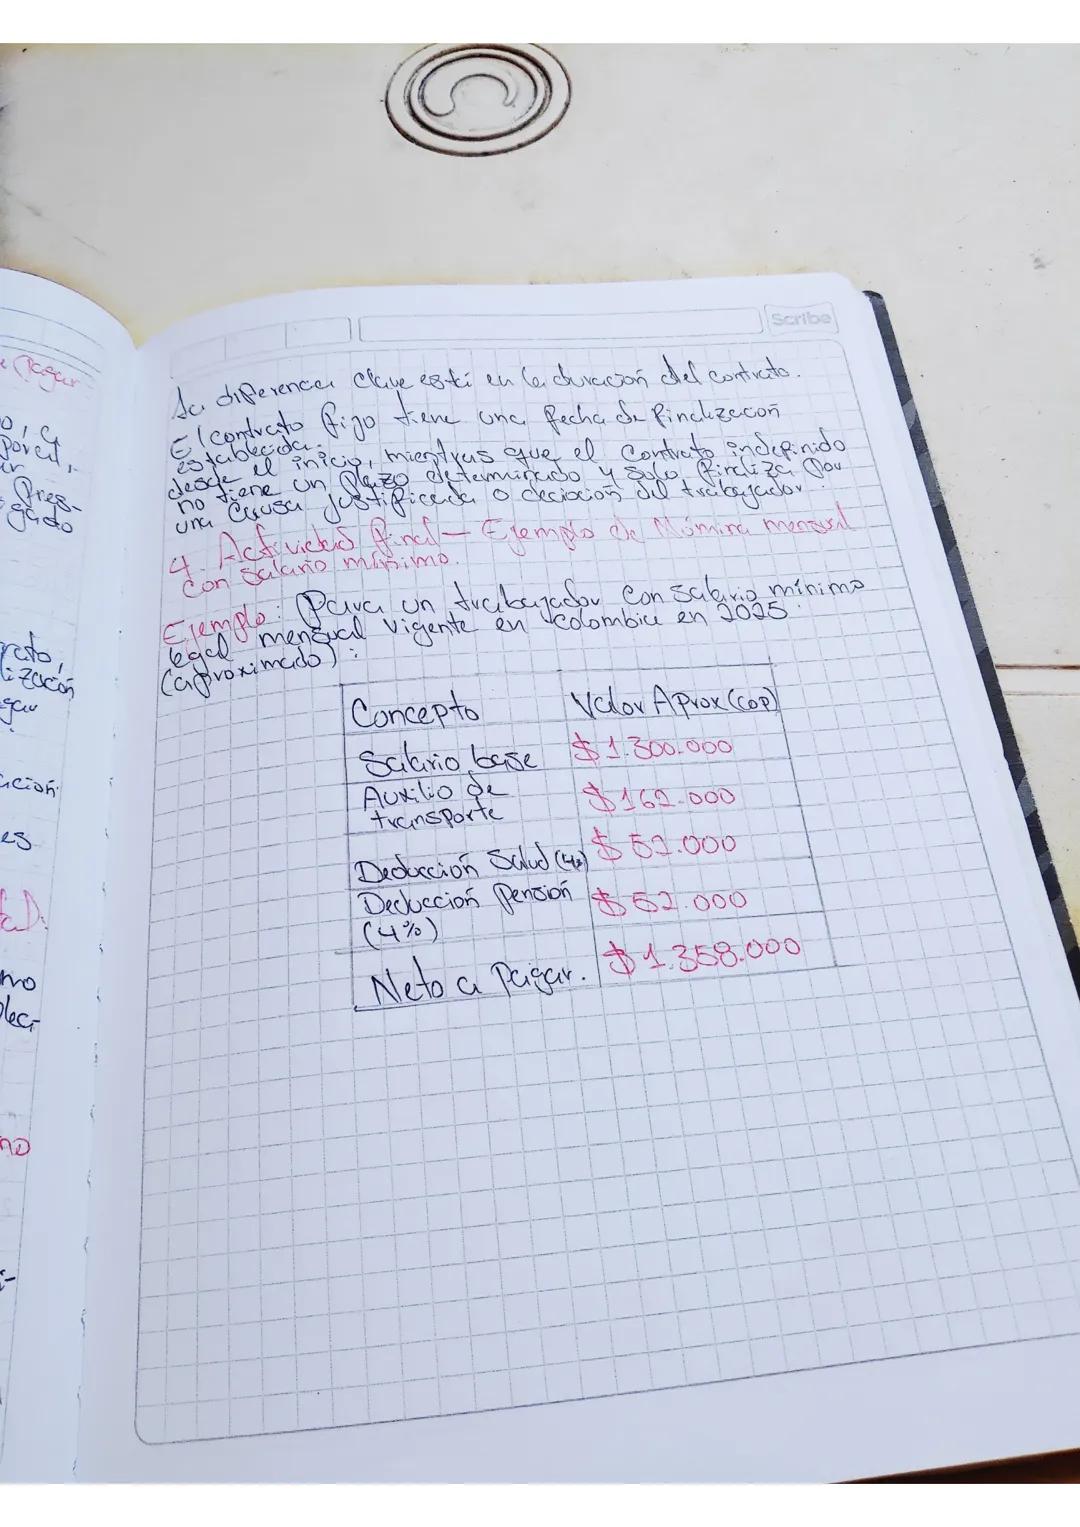 Scribe
La diferencia clave está en la duración del contrato.
El contrato fijo tiene una fecha de finalización
establecida.
desde el inicio, mientras que el contrato indefinido
no tiene un plazo determinado y solo finaliza por
una causa justificada o decisión del trabajador
4. Actividad final - Ejemplo de Nómina mensual
con salario mínimo.
Ejemplo: Para un trabajador con salario mínimo
legal mensual vigente en Colombia en 2025
(aproximado):
Concepto Valor Aprox (COP)
Salario base $ 1.300.000
Auxilio de
transporte $ 162.000
Deducción Salud (4%) $ 52.000
Deducción pensión $ 52.000
(4%)
Neto a Pagar. $ 1.358.000